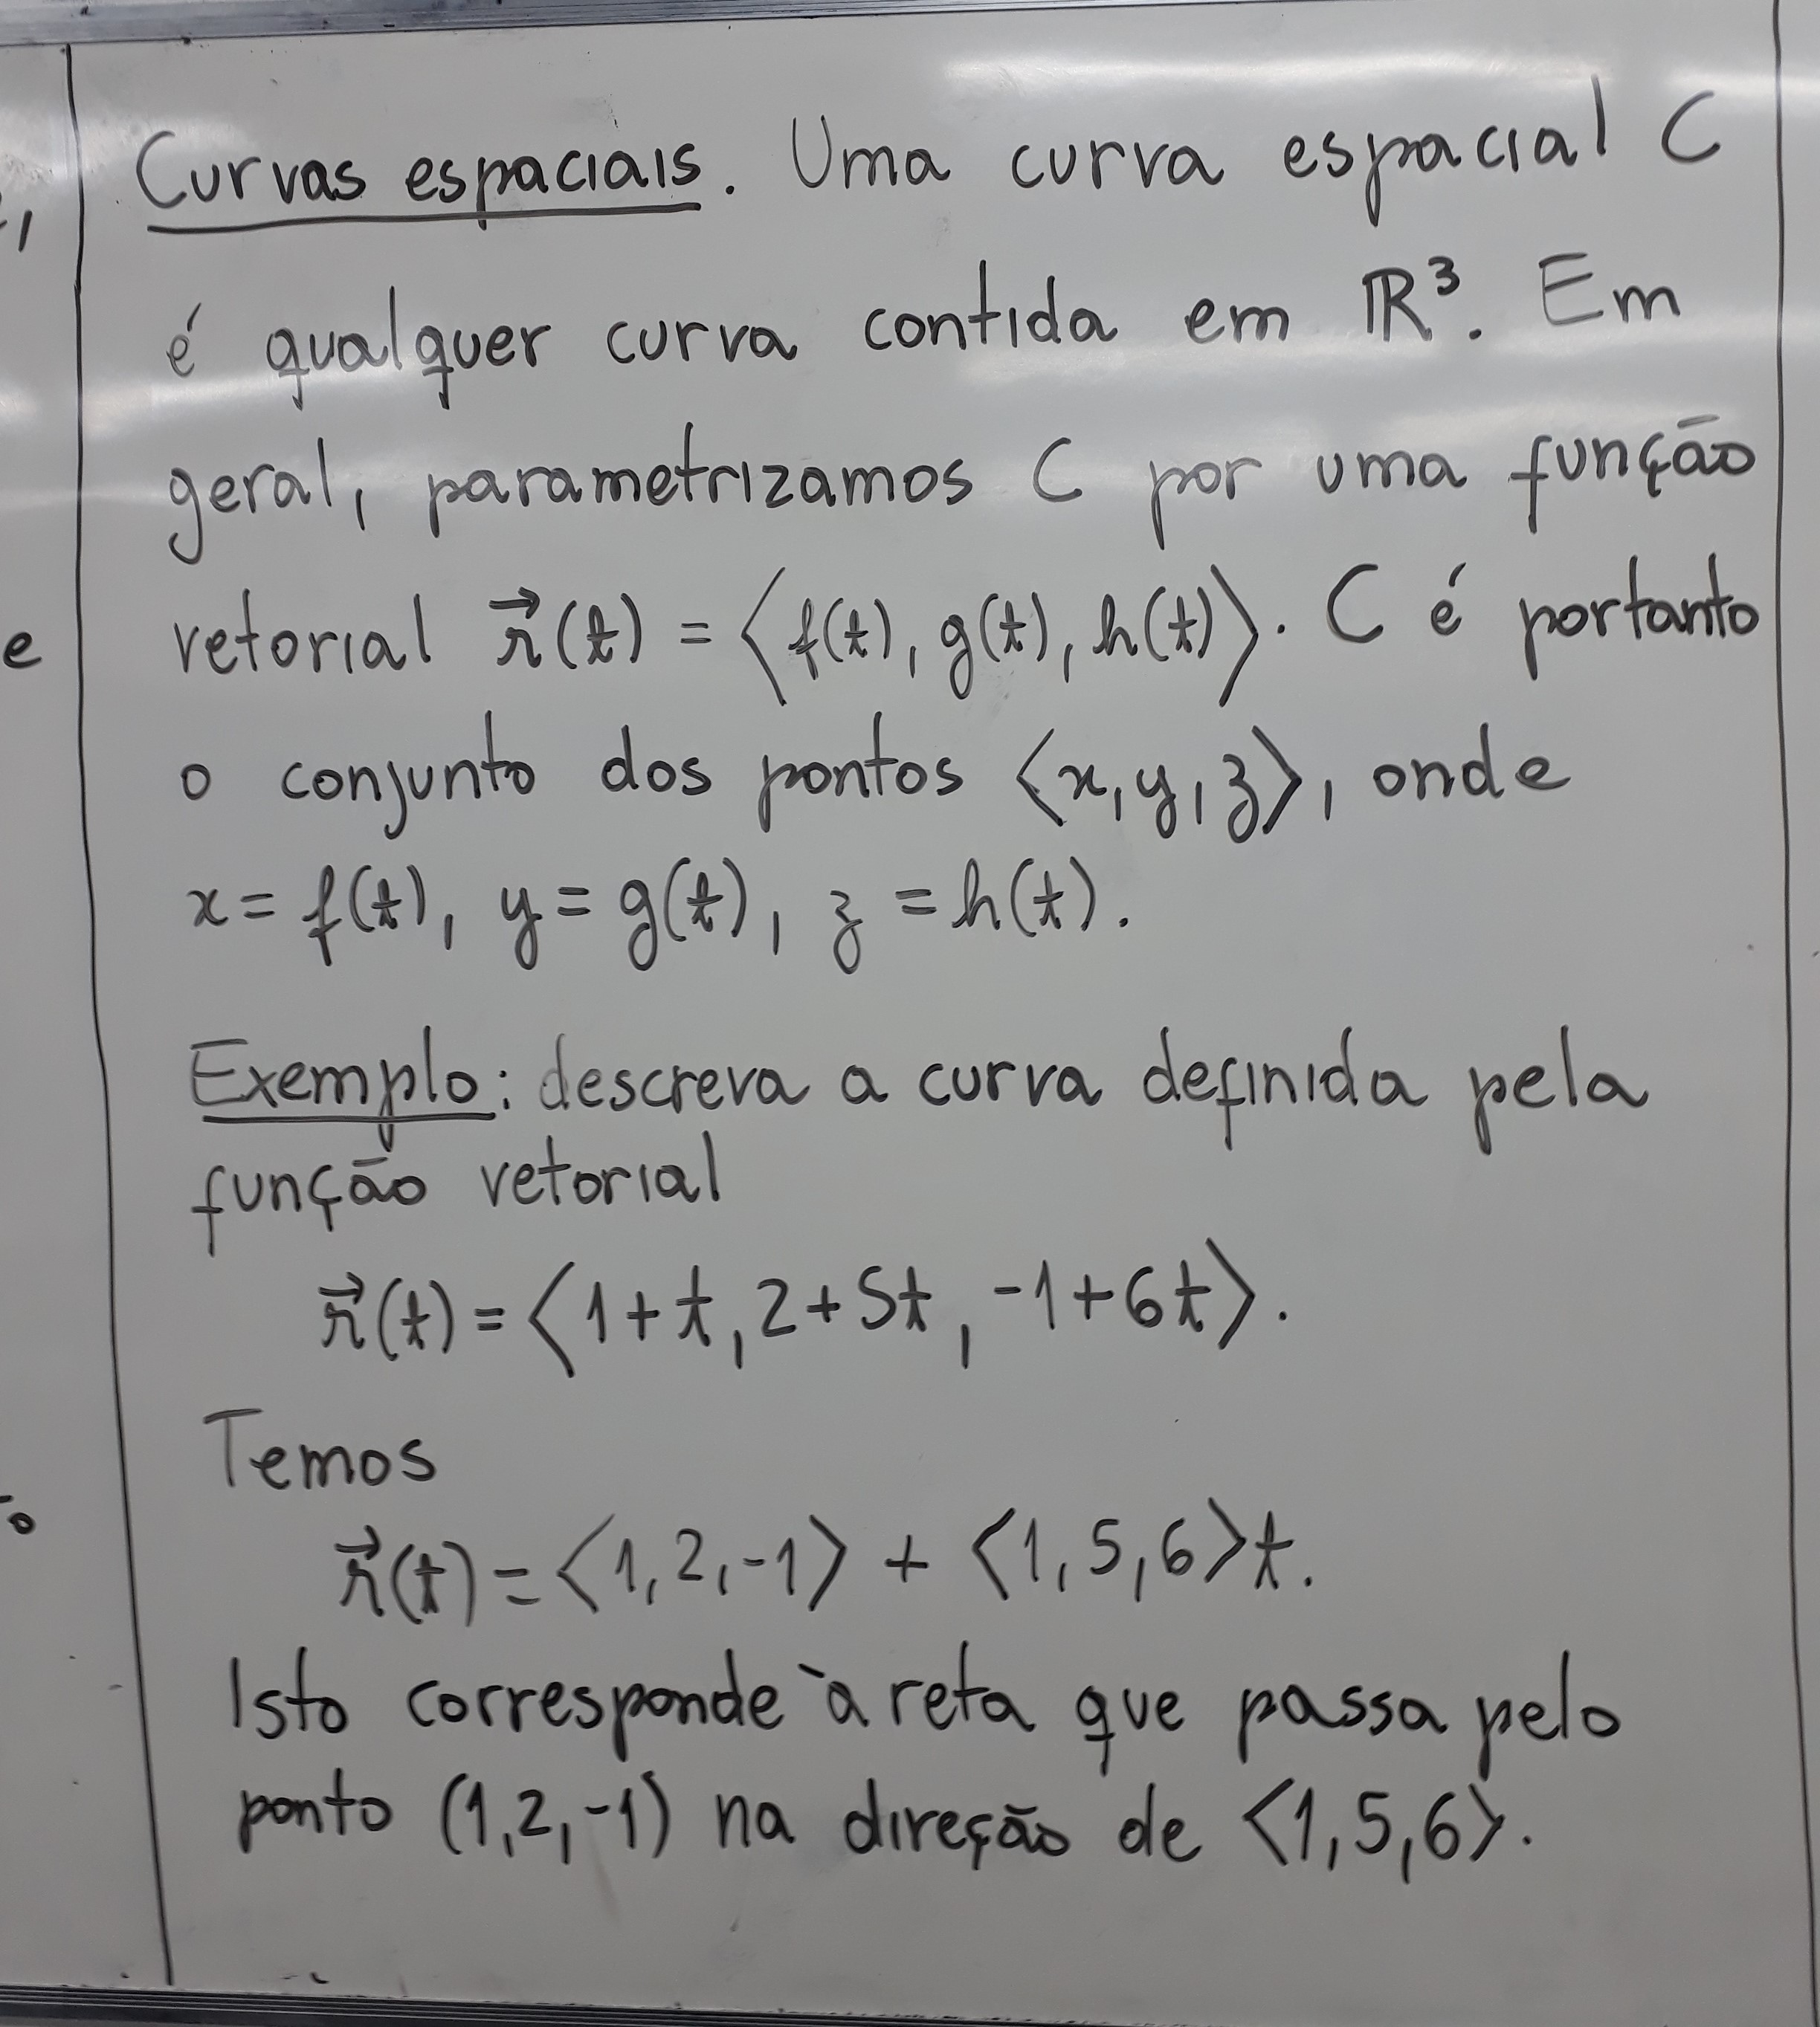 Curvas espaciais. Uma curva espacial C
é qualquer curva contida em ℝ³. Em
geral, parametrizamos C por uma função
e
vetorial r⃗(t) = ⟨f(t), g(t), h(t)⟩. C é portanto
o conjunto dos pontos ⟨x, y, z⟩, onde
x = f(t), y = g(t), z = h(t).
Exemplo: descreva a curva definida pela
função vetorial
r⃗(t) = ⟨1+t, 2+5t, -1+6t⟩.
Temos
r⃗(t) = ⟨1, 2, -1⟩ + ⟨1, 5, 6⟩t.
Isto corresponde à reta que passa pelo
ponto (1, 2, -1) na direção de ⟨1, 5, 6⟩.